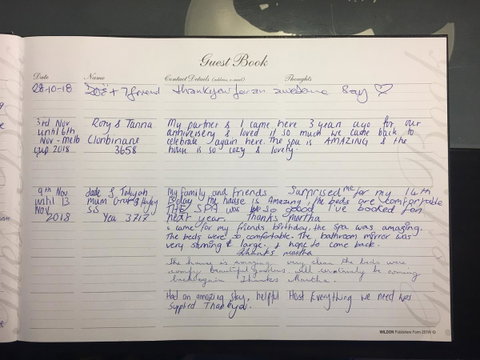 Guest Book
Date Name Contact Details (address, e-mail) Thoughts
28-10-18 + 7 friend thankyou for an awesome Stay ♡
3rd Nov Rory & Tanna My partner & I came here 3 years ago for our
until 6th anniversery & loved it so much we came back to
Nov - melb Clonbinane celebrate again here. The spa is AMAZING & the
cup 2018 3658 house is so cozy & lovely.
9th Nov & My family and friends Surprised me for my 14th
until 13 mum B'day the house is amazing, the beds are comfortable
Nov sis THE SPA was so good I've booked for
2018 Yea 3717 next year. Thanks martha
i came for my friends birthday, the spa was amazing.
The beds were so comfortable. The bathroom mirror was
very stunning & large. i hope to come back.
thanks martha
The house is amazing very clean the beds were
comfy beautiful gardens, will certainly be coming
back again Thankes Martha.
Had an amazing stay, helpful Host Everything we need was
Supplied Thankyou.
WILDON Publishers Form 201W ©